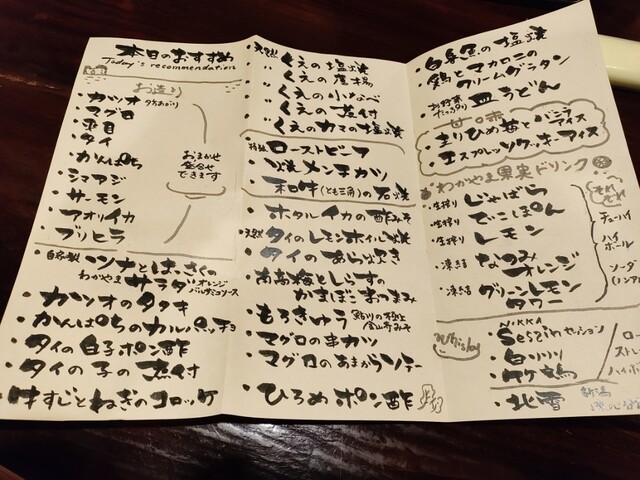 本日のおすすめ
Today's recommendation
お造り
・カツオ
・マグロ
・平目
・タイ
・かんぱち
・シマアジ
・サーモン
・アオリイカ
・ブリヒラ
おまかせ
盛合せ
できます
・自家製 ツナとはっさくの
わかやま サラダ オレンジ
バルサミコソース
・カツオのタタキ
・かんぱちのカルパッチョ
・タイの白子ポン酢
・タイの子の煮付
・牛すじとねぎのコロッケ
・天然 くえの塩焼
〃 くえの唐揚
〃 くえの小なべ
〃 くえの煮付
〃 くえのカマの塩焼
・特製 ローストビーフ
・メンチカツ
・和牛(とも三角)の石焼
・ホタルイカの酢みそ
・天然 タイのレモンホイル焼
・タイのあら炊き
・南高梅としらすの
かまぼこおつまみ
・もろきゅう
金山寺みそ
・マグロの串カツ
・マグロのあまからソテー
・ひろめポン酢
の塩焼
・鶏とマカロニの
クリームグラタン
・お野菜たっぷり 皿うどん
・まりひめ苺とバニラアイス
・エスプレッソクッキーアイス
わかやま果実ドリンク
・生搾り じゃばら
・生搾り でこぽん
・生搾り レモン
・凍結 なつみ
オレンジ
・凍結 グリーンレモン
サワー
それぞれ
チューハイ
ハイ
ボール
ソーダ
Whisky
NIKKA
・Session セッション
・白州
・竹鶴
・北雪 新潟